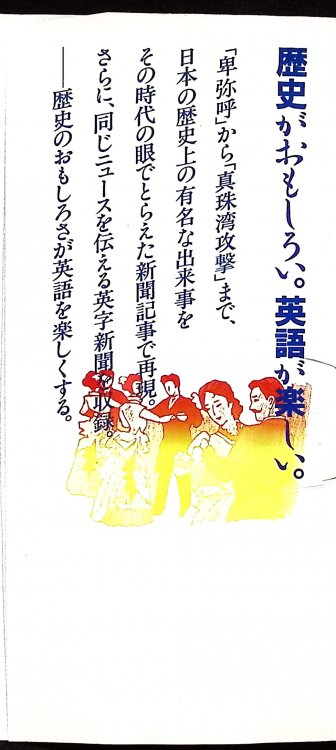 歴史がおもしろい。英語が楽しい。
「卑弥呼」から「真珠湾攻撃」まで、
日本の歴史上の有名な出来事を
その時代の眼でとらえた新聞記事で再現。
さらに、同じニュースを伝える英字新聞を収録。
──歴史のおもしろさが英語を楽しくする。